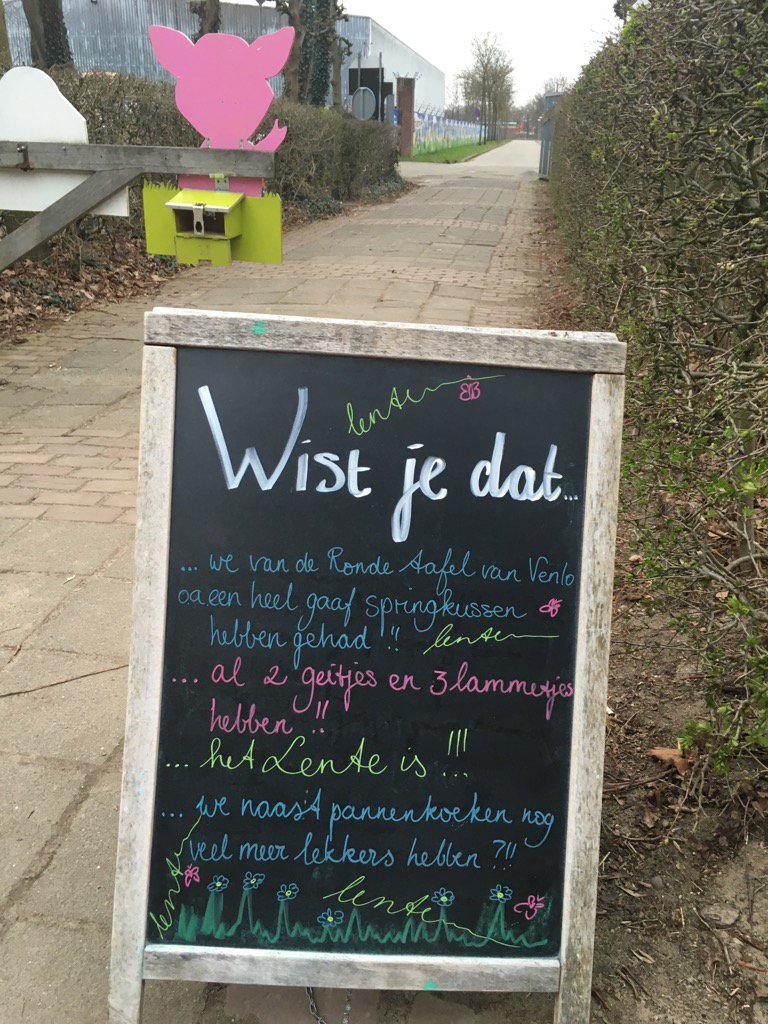 lente
Wist je dat...
... we van de Ronde tafel van Venlo
o.a een heel gaaf springkussen
hebben gehad !!
lente
... al 2 geitjes en 3 lammetjes
hebben !!
... het Lente is !!!
... we naast pannenkoeken nog
veel meer lekkers hebben ?!!
lente
lente